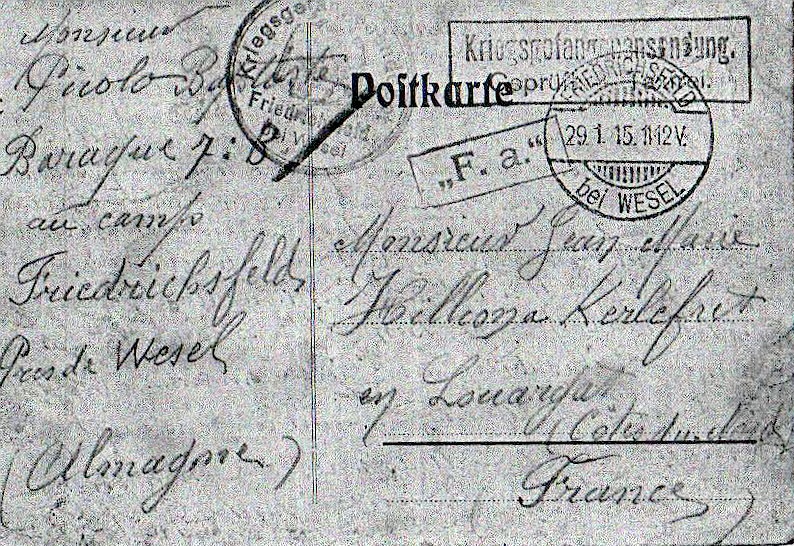 Monsieur
Picolo Baptiste
Baraque 7:B
au camp
Friedrichsfeld
Près de Wesel
(Almagne)
Kriegsge
Friedrichsfeld
bei Wesel
Postkarte
Kriegsgefangenensendung.
Geprüft
FRIEDRICHSFELD
29.1.15.11-12V.
bei WESEL
„F. a.“
Monsieur Jean Marie
Hilliona Kerlefret
en Louargat
(Côtes du Nord)
France)